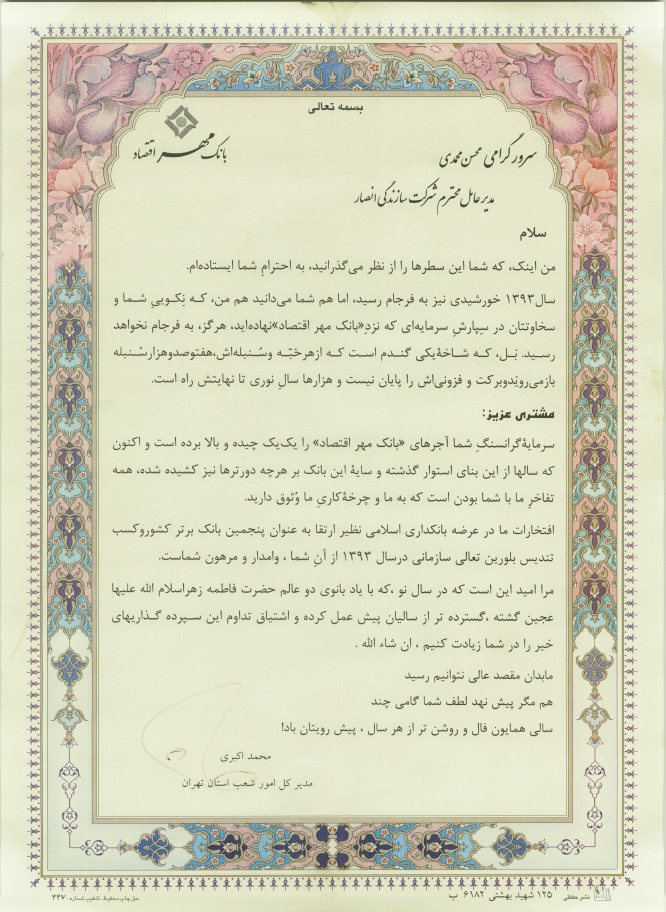 بسمه تعالی
بانک مهر اقتصاد
سرور گرامی محسن محمدی
مدیر عامل محترم شرکت سازندگی انصار
سلام
من اینک، که شما این سطرها را از نظر می‌گذرانید، به احترامِ شما ایستاده‌ام.
سال۱۳۹۳ خورشیدی نیز به فرجام رسید، اما هم شما می‌دانید هم من، کـه نِکـوییِ شمـا و
سخاوتتان در سِپارشِ سرمایه‌ای که نزدِ«بانک مهر اقتصاد»نهاده‌اید، هرگز، به فرجام نخواهد
رسـید. بَـل، کـه شـاخهٔ‌یکی گندم است کـه ازهرحَبّـه وسُـنبله‌اش،هفتوصدوهزارسُـنبله
بازمی‌رویَدوبرکت و فزونی‌اش را پایان نیست و هزارها سالِ نوری تا نهایتش راه است.
مشتری عزیز:
سرمایهٔ‌گرانسنگِ شما آجرهای «بانک مهر اقتصاد» را یک‌یک چیده و بالا برده است و اکنون
که سالها از این بنای استوار گذشته و سایهٔ این بانک بر هرچه دورترها نیز کشیده شده، همه
تفاخرِ ما با شما بودن است که به ما و چرخهٔ‌کاریِ ما وُثوق دارید.
افتخارات ما در عرضه بانکداری اسلامی نظیر ارتقا به عنوان پنجمین بانک برتر کشوروکسب
تندیس بلورین تعالی سازمانی درسال ۱۳۹۳ از آنِ شما ، وامدار و مرهون شماست.
مرا امید این است که در سال نو ،که با یاد بانوی دو عالم حضرت فاطمه زهراسلام الله علیها
عجین گشته ،گسترده تر از سالیان پیش عمل کرده و اشتیاق تداوم این سـپرده گـذاریهای
خیر را در شما زیادت کنیم ، ان شاء الله .
مابدان مقصد عالی نتوانیم رسید
هم مگر پیش نهد لطف شما گامی چند
سالی همایون فال و روشن تر از هر سال ، پیش رویتان باد!
محمد اکبری
مدیر کل امور شعب استان تهران
نشر حفظی
۱۲۵ شهید بهشتی ۶۱۸۲ ب
حق چاپ محفوظ. تذهیب شماره ۴۴۷۰